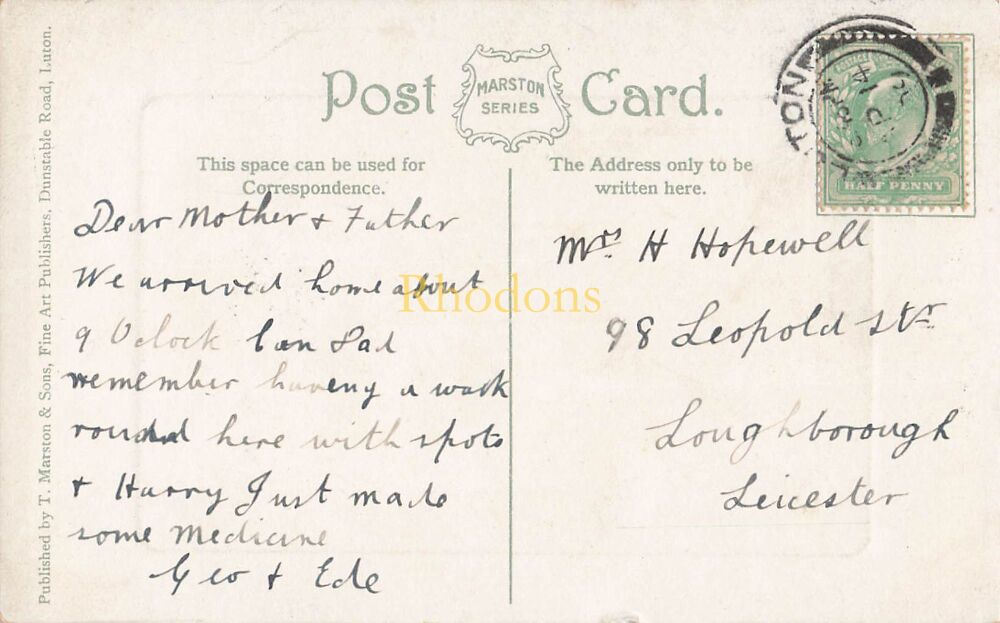 Post Card.
MARSTON
SERIES
This space can be used for
Correspondence.
The Address only to be
written here.
LUTON
HALF PENNY
Published by T. Marston & Sons, Fine Art Publishers, Dunstable Road, Luton.
Dear Mother & Father
We arrived home about
9 Oclock Can Dad
remember haveng a walk
round here with spots
& Harry Just made
some Medicine
Geo & Ede
Mrs H Hopewell
98 Leopold str
Loughborough
Leicester
Rhodons